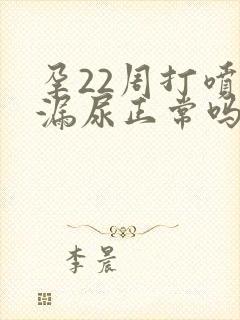 孕22周打喷
漏尿正常吗
李晨